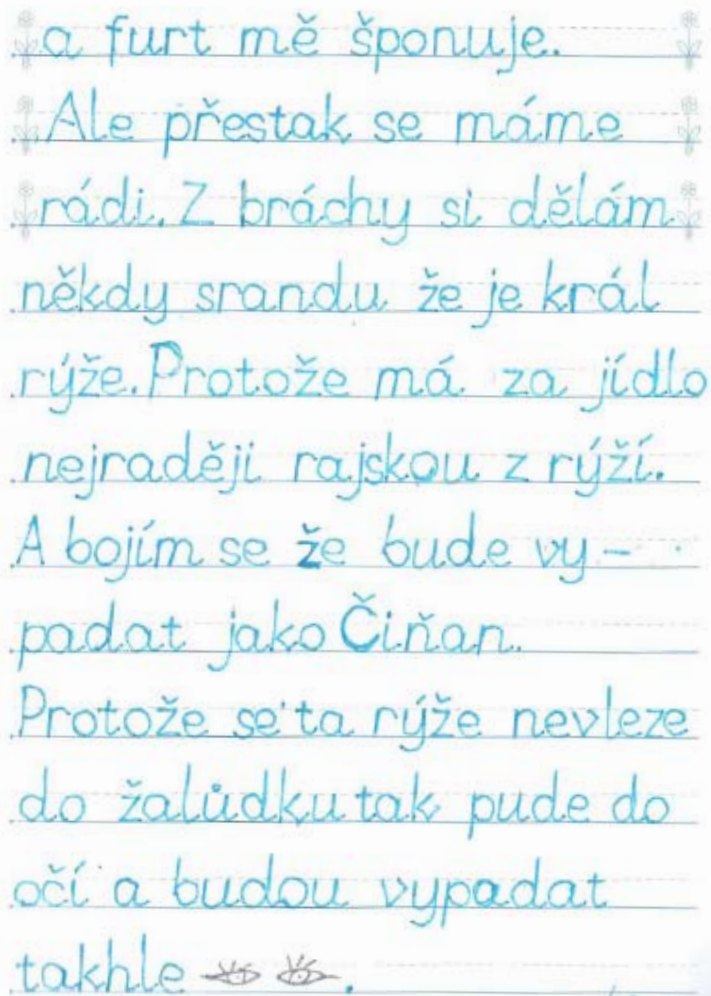 a furt mě šponuje.
Ale přestak se máme
rádi. Z bráchy si dělám
někdy srandu že je král
rýže. Protože má za jídlo
nejraději rajskou z rýží.
A bojím se že bude vy-
padat jako Čiňan.
Protože se ta rýže nevleze
do žalůdku tak pude do
očí a budou vypadat
takhle .